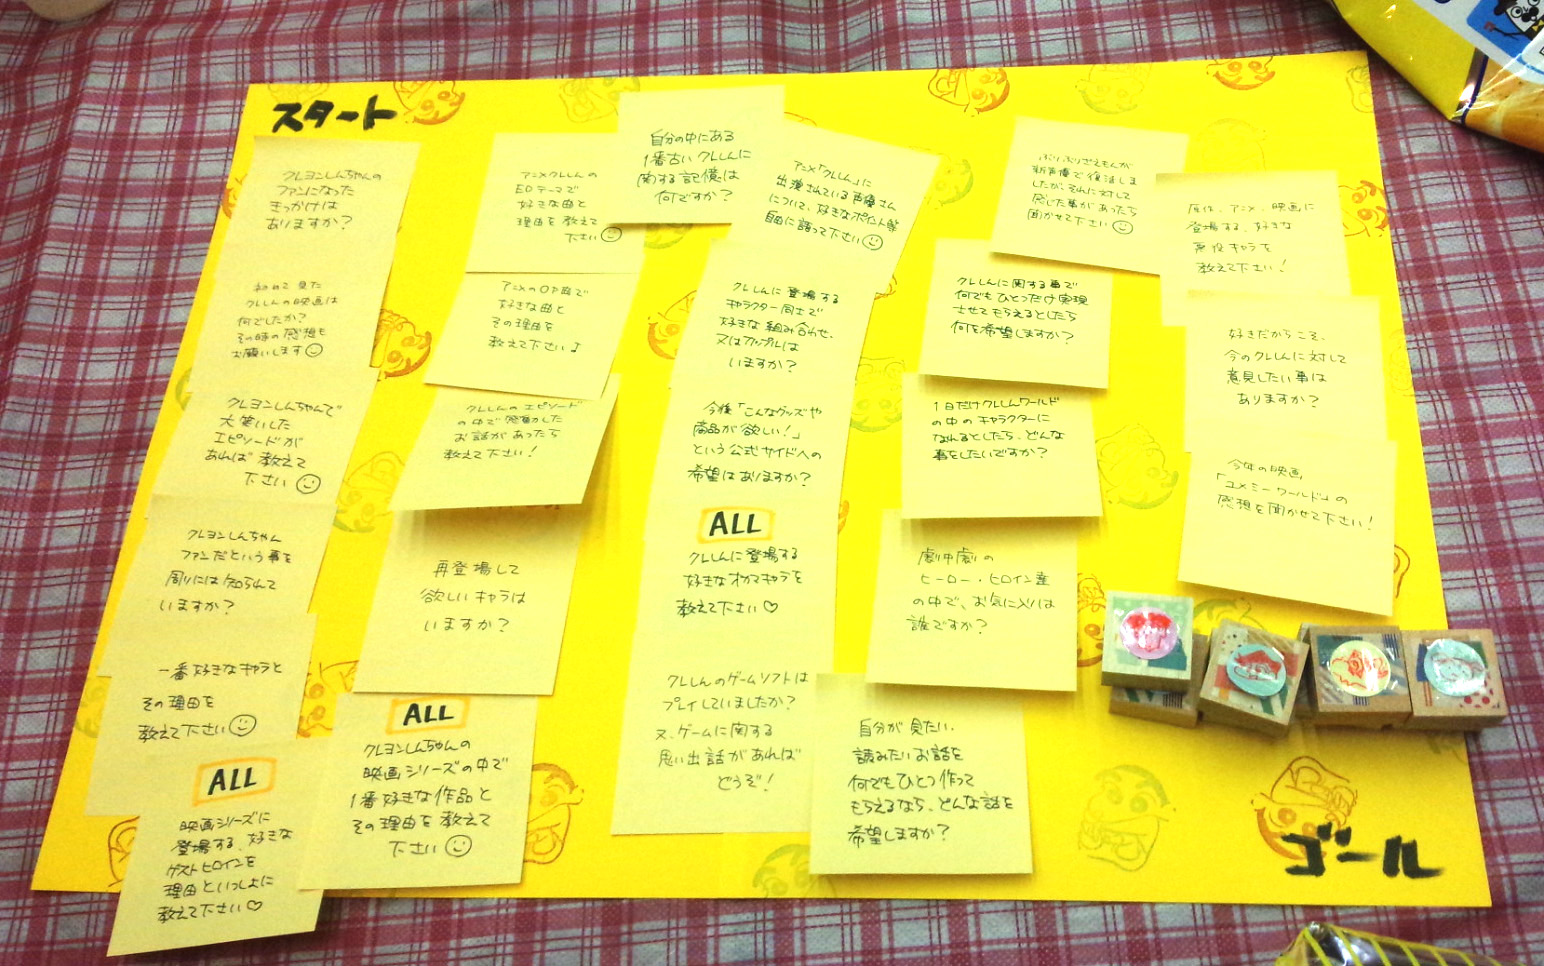 スタート
クレヨンしんちゃんの
ファンになった
きっかけは
ありますか?
初めて見た
クレしんの映画は
何でしたか?
その時の感想も
お願いします
クレヨンしんちゃんで
大笑いした
エピソードが
あれば教えて
下さい
クレヨンしんちゃん
ファンだという事を
周りには知らんて
いますか?
一番好きなキャラと
その理由を
教えて下さい
ALL
映画シリーズに
登場する、好きな
ゲストヒロインを
理由といっしょに
教えて下さい♡
ALL
クレヨンしんちゃんの
映画シリーズの中で
1番好きな作品と
その理由を教えて
下さい
再登場して
欲しいキャラは
いますか?
クレしんのエピソード
の中で感動した
お話があったら
教えて下さい!
アニメのOP曲で
好きな曲と
その理由を
教えて下さい♪
アニメクレしんの
EDテーマで
好きな曲と
理由を教えて
下さい
自分の中にある
1番古いクレしんに
関する記憶は
何ですか?
アニメ「クレしん」に
出演されている声優さん
について、好きなポイント等
自由に語って下さい
クレしんに登場する
キャラクター同士で
好きな組み合わせ、
又はカップルは
いますか?
今後「こんなグッズや
商品が欲しい!」
という公式サイドへの
希望はありますか?
ALL
クレしんに登場する
好きなオカマキャラを
教えて下さい♡
クレしんのゲームソフトは
プレイしていましたか?
又、ゲームに関する
思い出話があれば
どうぞ!
自分が見たい、
読みたいお話を
何でもひとつ作って
もらえるなら、どんな話を
希望しますか?
劇中劇の
ヒーロー・ヒロイン達
の中で、お気に入りは
誰ですか?
1日だけクレしんワールド
の中のキャラクターに
なれるとしたら、どんな
事をしたいですか?
クレしんに関する事で
何でもひとつだけ実現
させてもらえるとしたら
何を希望しますか?
ぶりぶりざえもんが
新声優で復活しま
したが、それに対して
感じた事があったら
聞かせて下さい
原作、アニメ、映画に
登場する、好きな
悪役キャラを
教えて下さい!
好きだからこそ、
今のクレしんに対して
意見したい事は
ありますか?
今年の映画
「ユメミーワールド」の
感想を聞かせて下さい!
ゴール